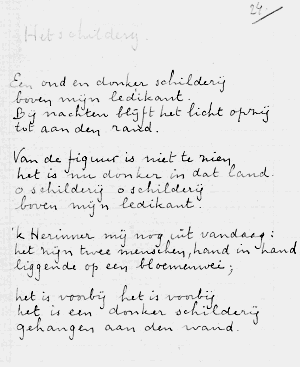 24.
Het schilderij.
Een oud en donker schilderij
boven mijn ledikant.
Bij nachten blijft het licht opzij
tot aan den rand.
Van de figuur is niet te zien,
het is nu donker in dat land.
o schilderij o schilderij
boven mijn ledikant.
'k Herinner mij nog uit vandaag:
het zijn twee menschen, hand in hand
liggende op een bloemenwei;
het is voorbij het is voorbij
het is een donker schilderij
gehangen aan den wand.